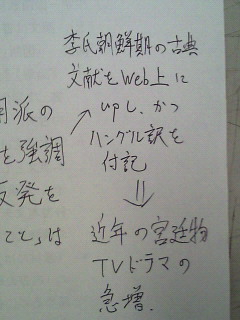 李氏朝鮮期の古典
文献をWeb上に
upし、かつ
ハングル訳を
付記
⇓
近年の宮廷物
TVドラマの
急増.
用派の
を強調
反発を
こと」は